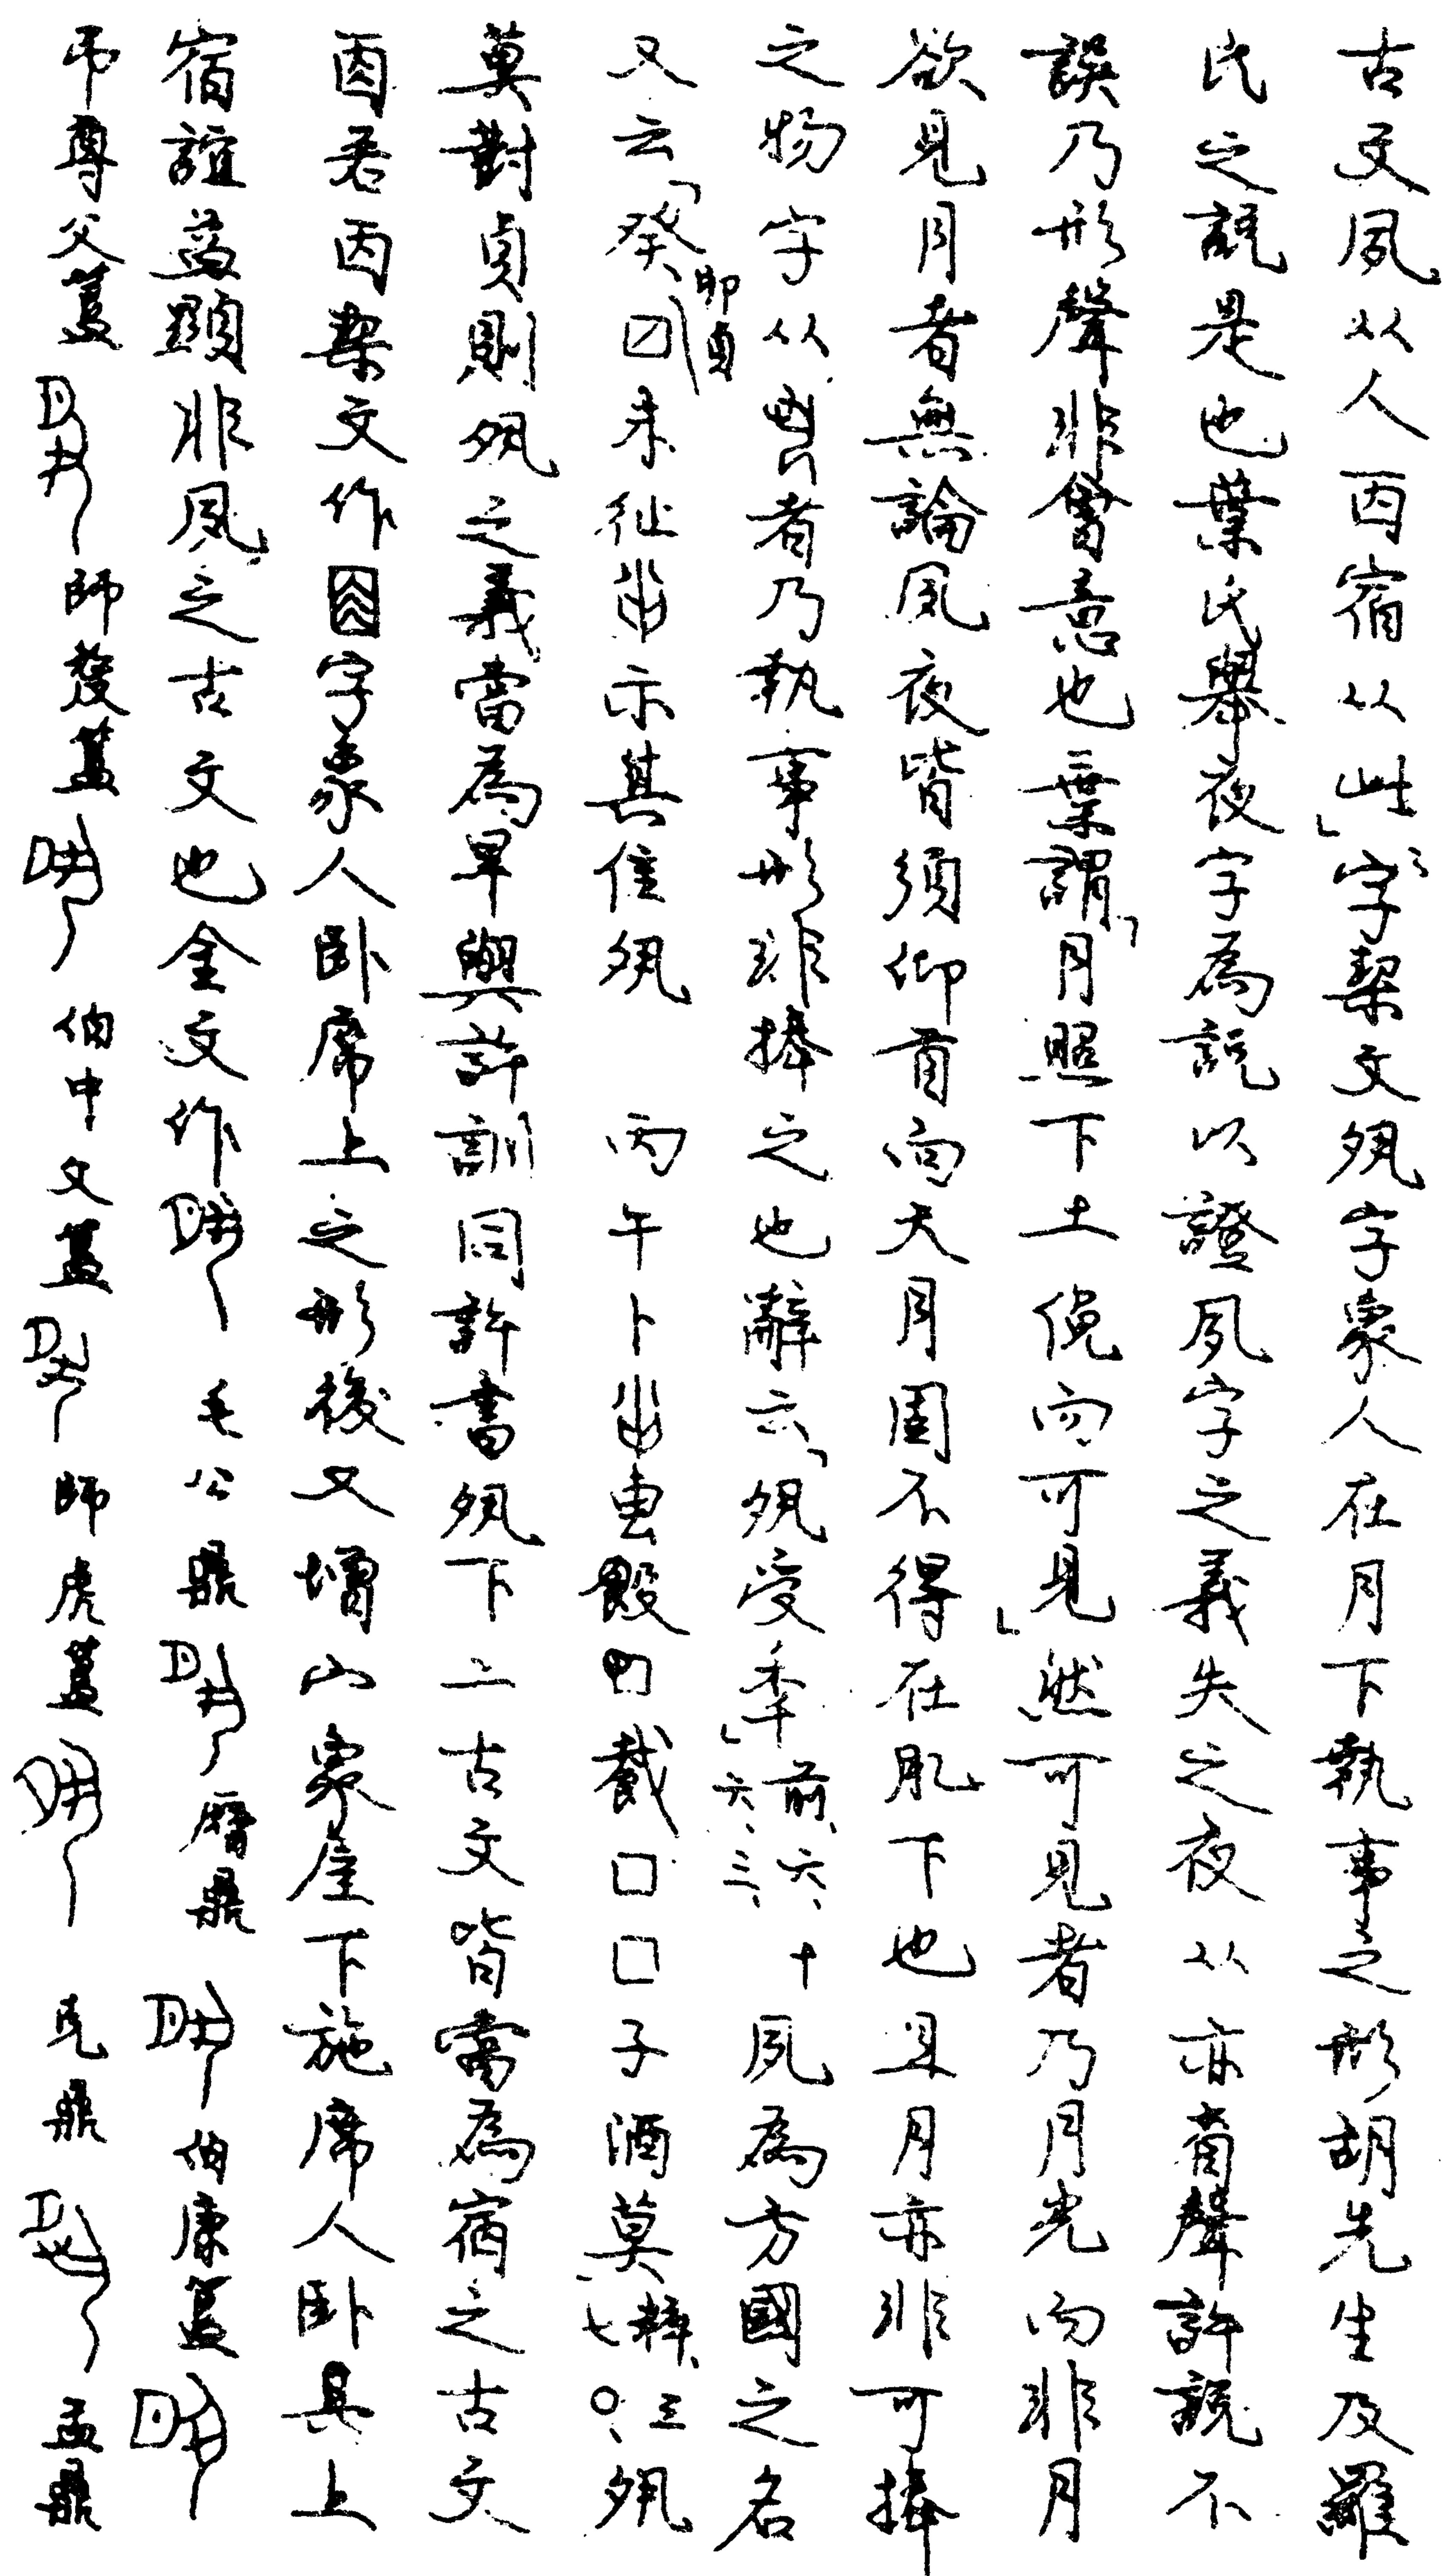 古文夙从人㐁宿从此」字栔文夙字象人在月下執事之形胡先生及羅
氏之說是也葉氏舉夜字為說以證夙字之義失之夜从亦省聲許說不
誤乃形聲非會意也葉謂「月照下土俛而可見」然可見者乃月光而非月
欲見月者無論夙夜皆須仰首向天月固不得在肘下也且月亦非可捧
之物字从者乃執事形非捧之也辭云「夙受年」前、六、十六、三、夙為方國之名
又云「癸囗即貞未祉示其隹夙 丙午卜叀𣪘囗𢦏囗囗子酒莫粹、三七〇、夙
莫對貞則夙之義當為早與許訓同許書夙下二古文皆當為宿之古文
㐁若㐁栔文作字象人卧席上之形後又增宀象屋下施席人卧其上
宿誼益顯非夙之古文也金文作 毛公鼎 曆鼎 伯康簋
弔尊父簋 師𠭰簋 伯中父簋 師虎簋 克鼎 盂鼎